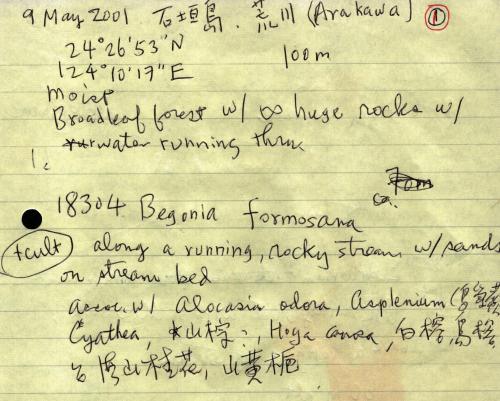 9 May 2001. 石垣島. 荒川 (Arakawa) ①
24°26'53"N 100m
124°10'17"E
moist
Broadleaf forest w/ ∞ huge rocks w/
water running thru
18304 Begonia formosana ca. 70m
+cult along a running, rocky stream w/ sands
on stream bed
assoc. w/ Alocasia odora, Asplenium (鳥巢蕨
Cyathea, 山棕?, Hoya carnosa, 白榕, 烏
台灣山桂花, 山黃梔